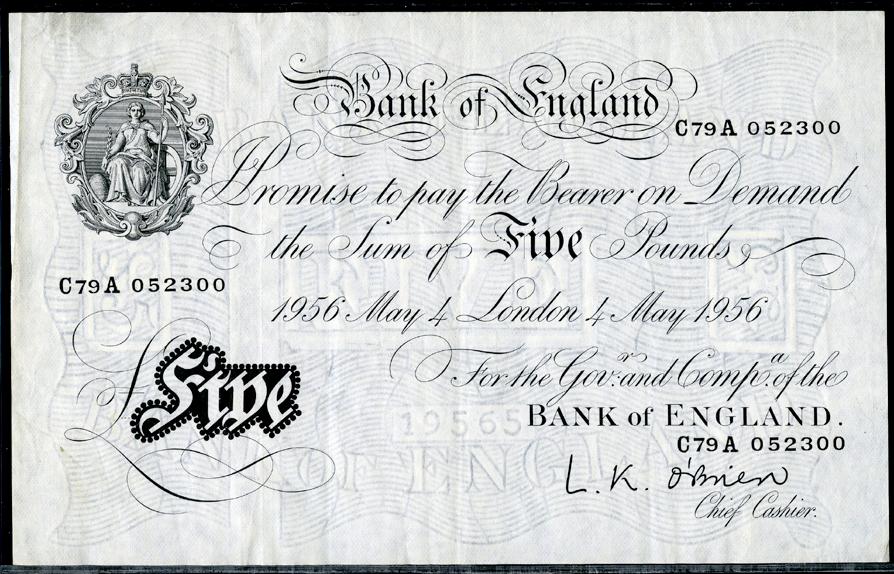 Bank of England
C79A 052300
I Promise to pay the Bearer on Demand
the Sum of Five Pounds
C79A 052300
1956 May 4 London 4 May 1956
£Five
For the Govr. and Compa. of the
BANK of ENGLAND.
C79A 052300
L. K. O'Brien
Chief Cashier.
OF ENGLA